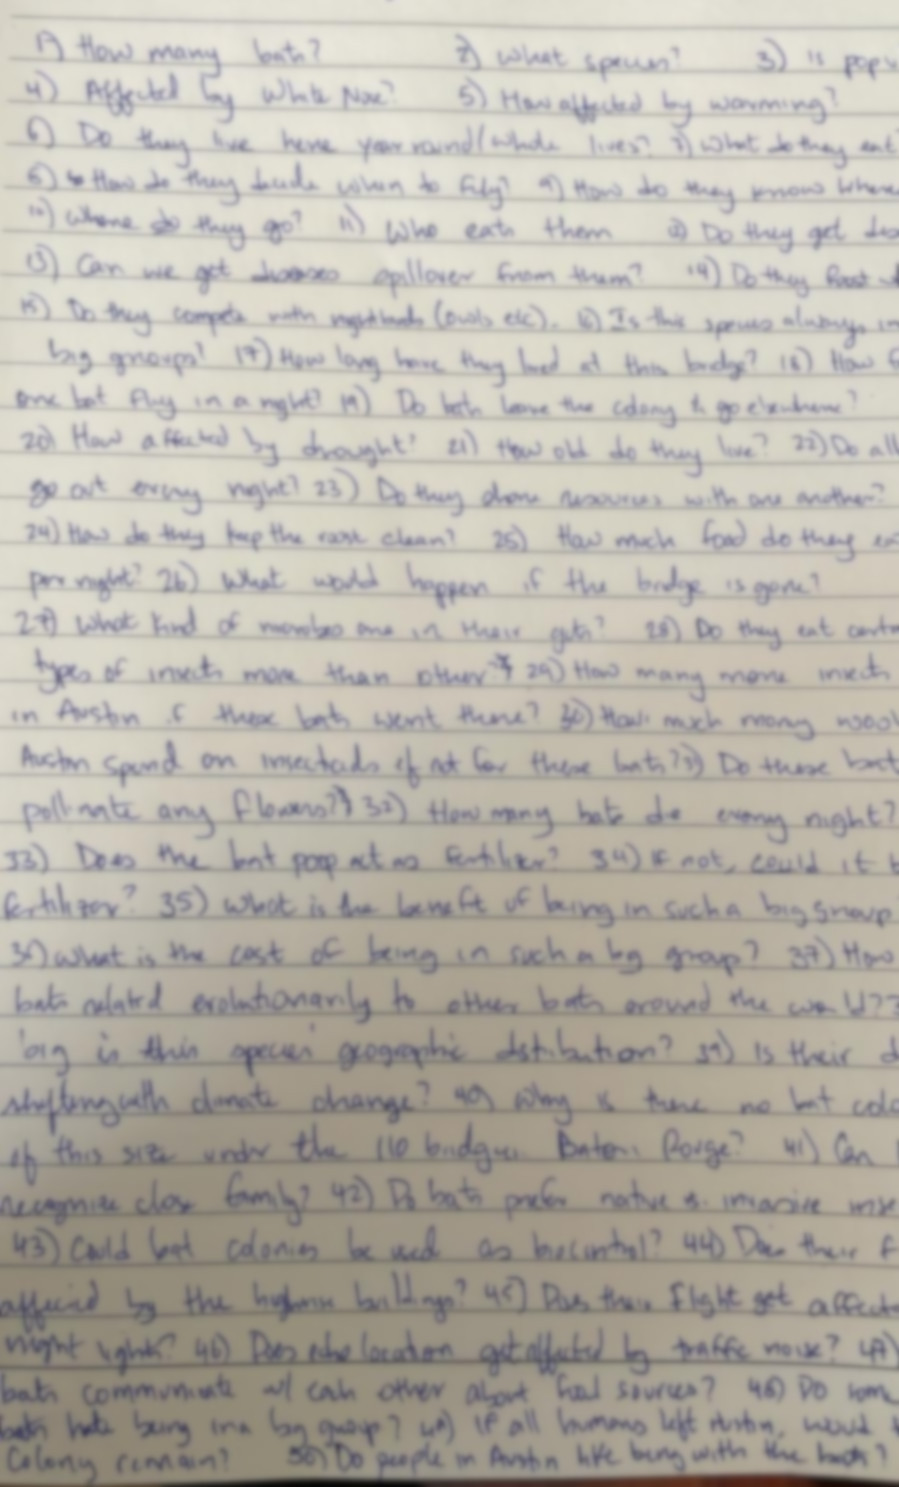 1) How many bats? 2) What species? 3) is popu
4) Affected by White Nose? 5) How affected by warming?
6) Do they live here year round (whole lives? 7) What do they eat
8) How do they decide when to fly? 9) How do they know where
10) Where do they go? 11) Who eats them 12) Do they get
13) Can we get diseases spillover from them? 14) Do they Roost
15) Do they compete with nightbirds (owls etc). 16) Is this species always in
big groups? 17) How long have they lived at this bridge? 18) How
one bat fly in a night? 19) Do bats leave the colony to go elsewhere?
20) How affected by drought? 21) How old do they live? 22) Do all
go out every night? 23) Do they share resources with one another?
24) How do they keep the roost clean? 25) How much food do they ea
per night? 26) What would happen if the bridge is gone?
27) What kind of microbes are in their guts? 28) Do they eat certa
types of insects more than other? 29) How many more insects
in Austin if these bats weren't there? 30) How much money woul
Austin spend on insecticides if not for these bats? 31) Do these bat
pollinate any flowers? 32) How many bats die every night?
33) Does the bat poop act as fertilizer? 34) If not, could it b
fertilizer? 35) What is the benefit of being in such a big group
36) What is the cost of being in such a big group? 37) How
bats related evolutionarily to other bats around the world?
big is this species' geographic distribution? 39) Is their d
shifting with climate change? 40) Why is there no bat colo
of this size under the 110 bridge in Baton Rouge? 41) Can
recognize close family? 42) Do bats prefer native vs. invasive inse
43) Could bat colonies be used as biocontrol? 44) Does their f
affected by the highrise buildings? 45) Does their flight get affect
night lights? 46) Does echolocation get affected by traffic noise? 47)
bats communicate w/ each other about food sources? 48) Do some
bats hate being in a big group? 49) If all humans left Austin, would t
Colony remain? 50) Do people in Austin like being with the bats?